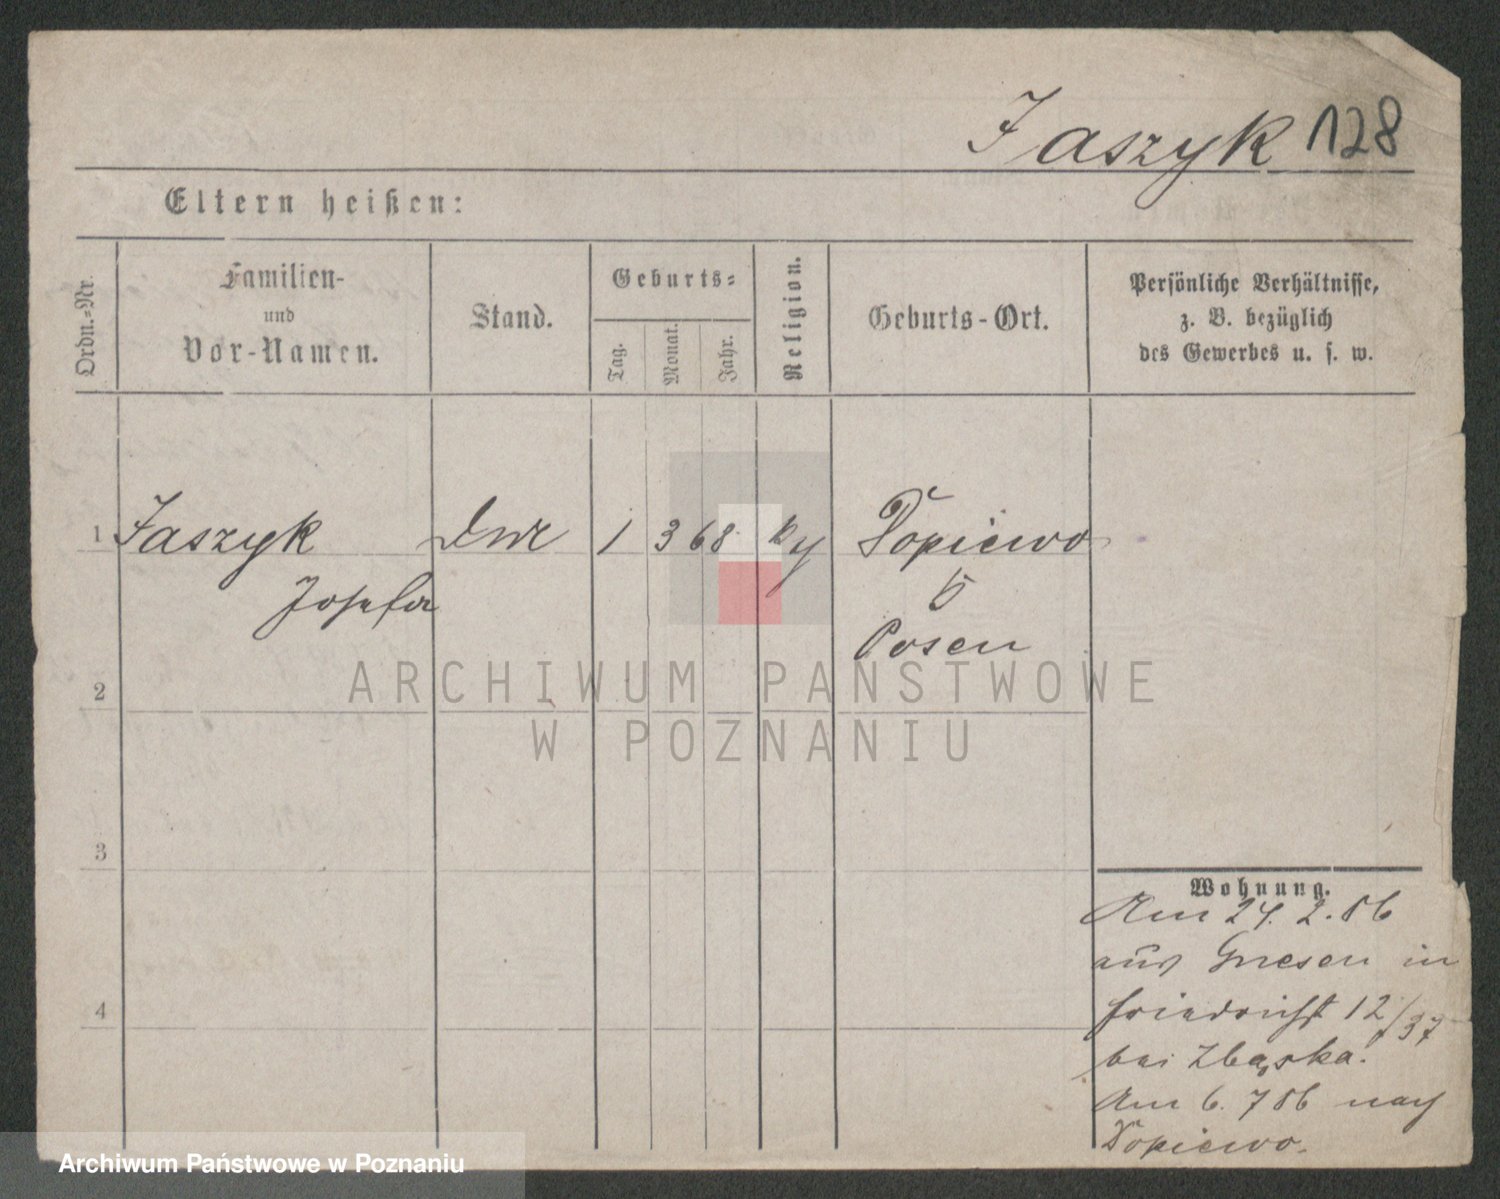 Jaszyk 128
Eltern heißen:
Ordn.-Nr.
Familien-
und
Vor-Namen.
Stand.
Geburts-
Tag.
Monat.
Jahr.
Religion.
Geburts-Ort.
Persönliche Verhältnisse,
z. B. bezüglich
des Gewerbes u. s. w.
1 Jaszyk 1 3 68 Dopiewo
Josefa
Posen
2
3
4
Wohnung.
Am 24. 2. 86
aus Gnesen in
Friedrichst 12/37
bei Zbąska.
Am 6. 7 86 nach
Dopiewo.
ARCHIWUM PAŃSTWOWE
W POZNANIU
Archiwum Państwowe w Poznaniu